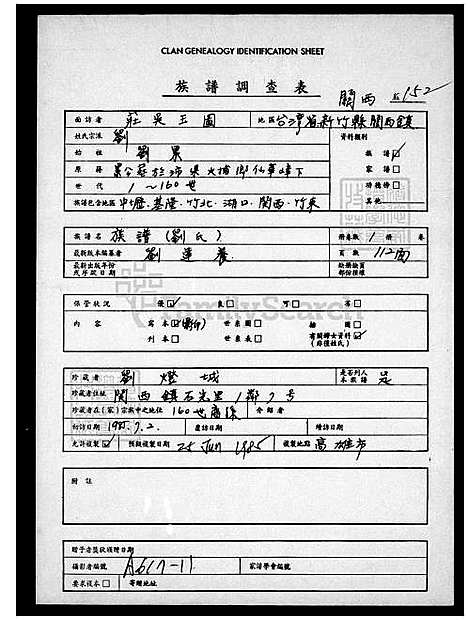 CLAN GENEALOGY IDENTIFICATION SHEET
族譜調查表
關西 152
面訪者 莊吳玉圖 地區 台灣省新竹縣關西鎮
姓氏宗派 劉 資料類別
始祖 劉累 族譜☑
原籍 家譜□
世代 1~160世 功德榜□
族譜包含地區 中壢.基隆.竹北.湖口.關西.竹東 其他
族譜名 族譜(劉氏) 冊卷數 1 冊 卷
最新版本編纂者 劉蓮養 頁數 112面
最新出版年份或序跋日期
保管狀況 優☑ 良□ 可□ 劣□
內容 寫本☑(影印) 世系圖□ 插圖□ 有關婦女資料☑
刊本□ 世系表□ (非僅姓氏)
珍藏者 劉燈城 是否列入本族譜 是
珍藏者住址 關西鎮石光里1鄰7號
珍藏者在(家)宗族中之地位 160世裔孫 介紹者
初訪日期 1985.7.2. 複訪日期 續訪日期
允許複製☑ 預擬複製日期 25 Jun 1985 複製地點 高雄市
附註
贈予者獎狀頒贈日期
攝影者編號 A617-11 家譜學會編號
要求複本□ 寄贈地址
FamilySearch